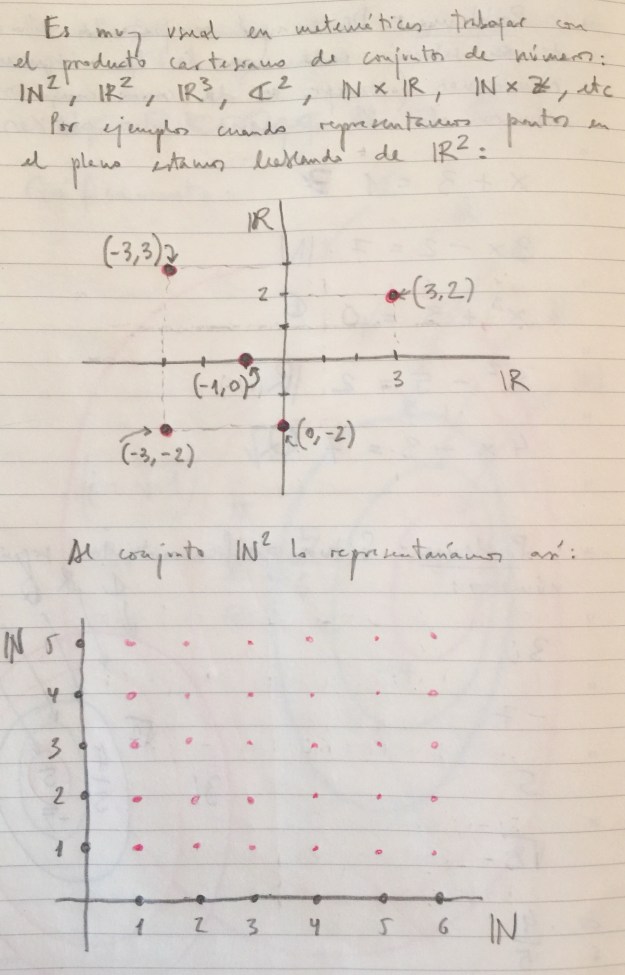 Es muy usual en matemáticas trabajar con
el producto cartesiano de conjuntos de números:
ℕ², ℝ², ℝ³, ℂ², ℕ × ℝ, ℕ × ℤ, etc
Por ejemplos cuando representamos puntos en
el plano estamos hablando de ℝ²:
ℝ
(-3,3)
2
(3,2)
(-1,0)
3
ℝ
(0,-2)
(-3,-2)
Al conjunto ℕ² lo representaríamos así:
ℕ 5
4
3
2
1
1 2 3 4 5 6 ℕ